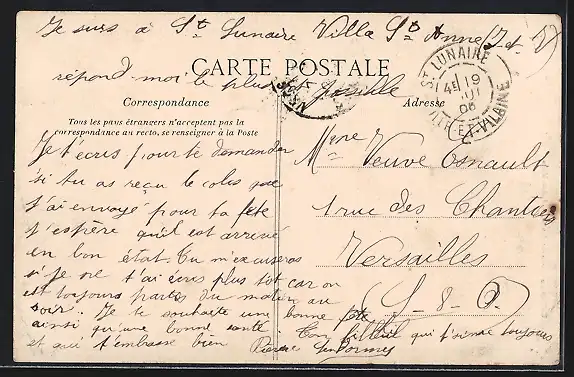 Je suis à St Lunaire Villa Ste Anne (I. et V)
répond-moi le plus tôt possible
CARTE POSTALE
Correspondance
Adresse
Tous les pays étrangers n'acceptent pas la
correspondance au recto, se renseigner à la Poste
ST LUNAIRE
ILLE-ET-VILAINE
4E 19
06
Je t'écris pour te demander
si tu as reçu le colis que
j'ai envoyé pour ta fête
j'espère qu'il est arrivé
en bon état. Tu m'excuseras
si je ne t'ai écris plus tôt car on
est toujours partis du matin au
soir. Je te souhaite une bonne fête
ainsi qu'une bonne santé. Ton filleul qui t'aime toujours
et qui t'embrasse bien Pierre
Mme Veuve Esnault
1 rue des Chantiers
Versailles
S-&-O